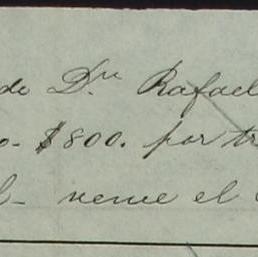 de Dn Rafael
o- $800. por tr
l- vence el